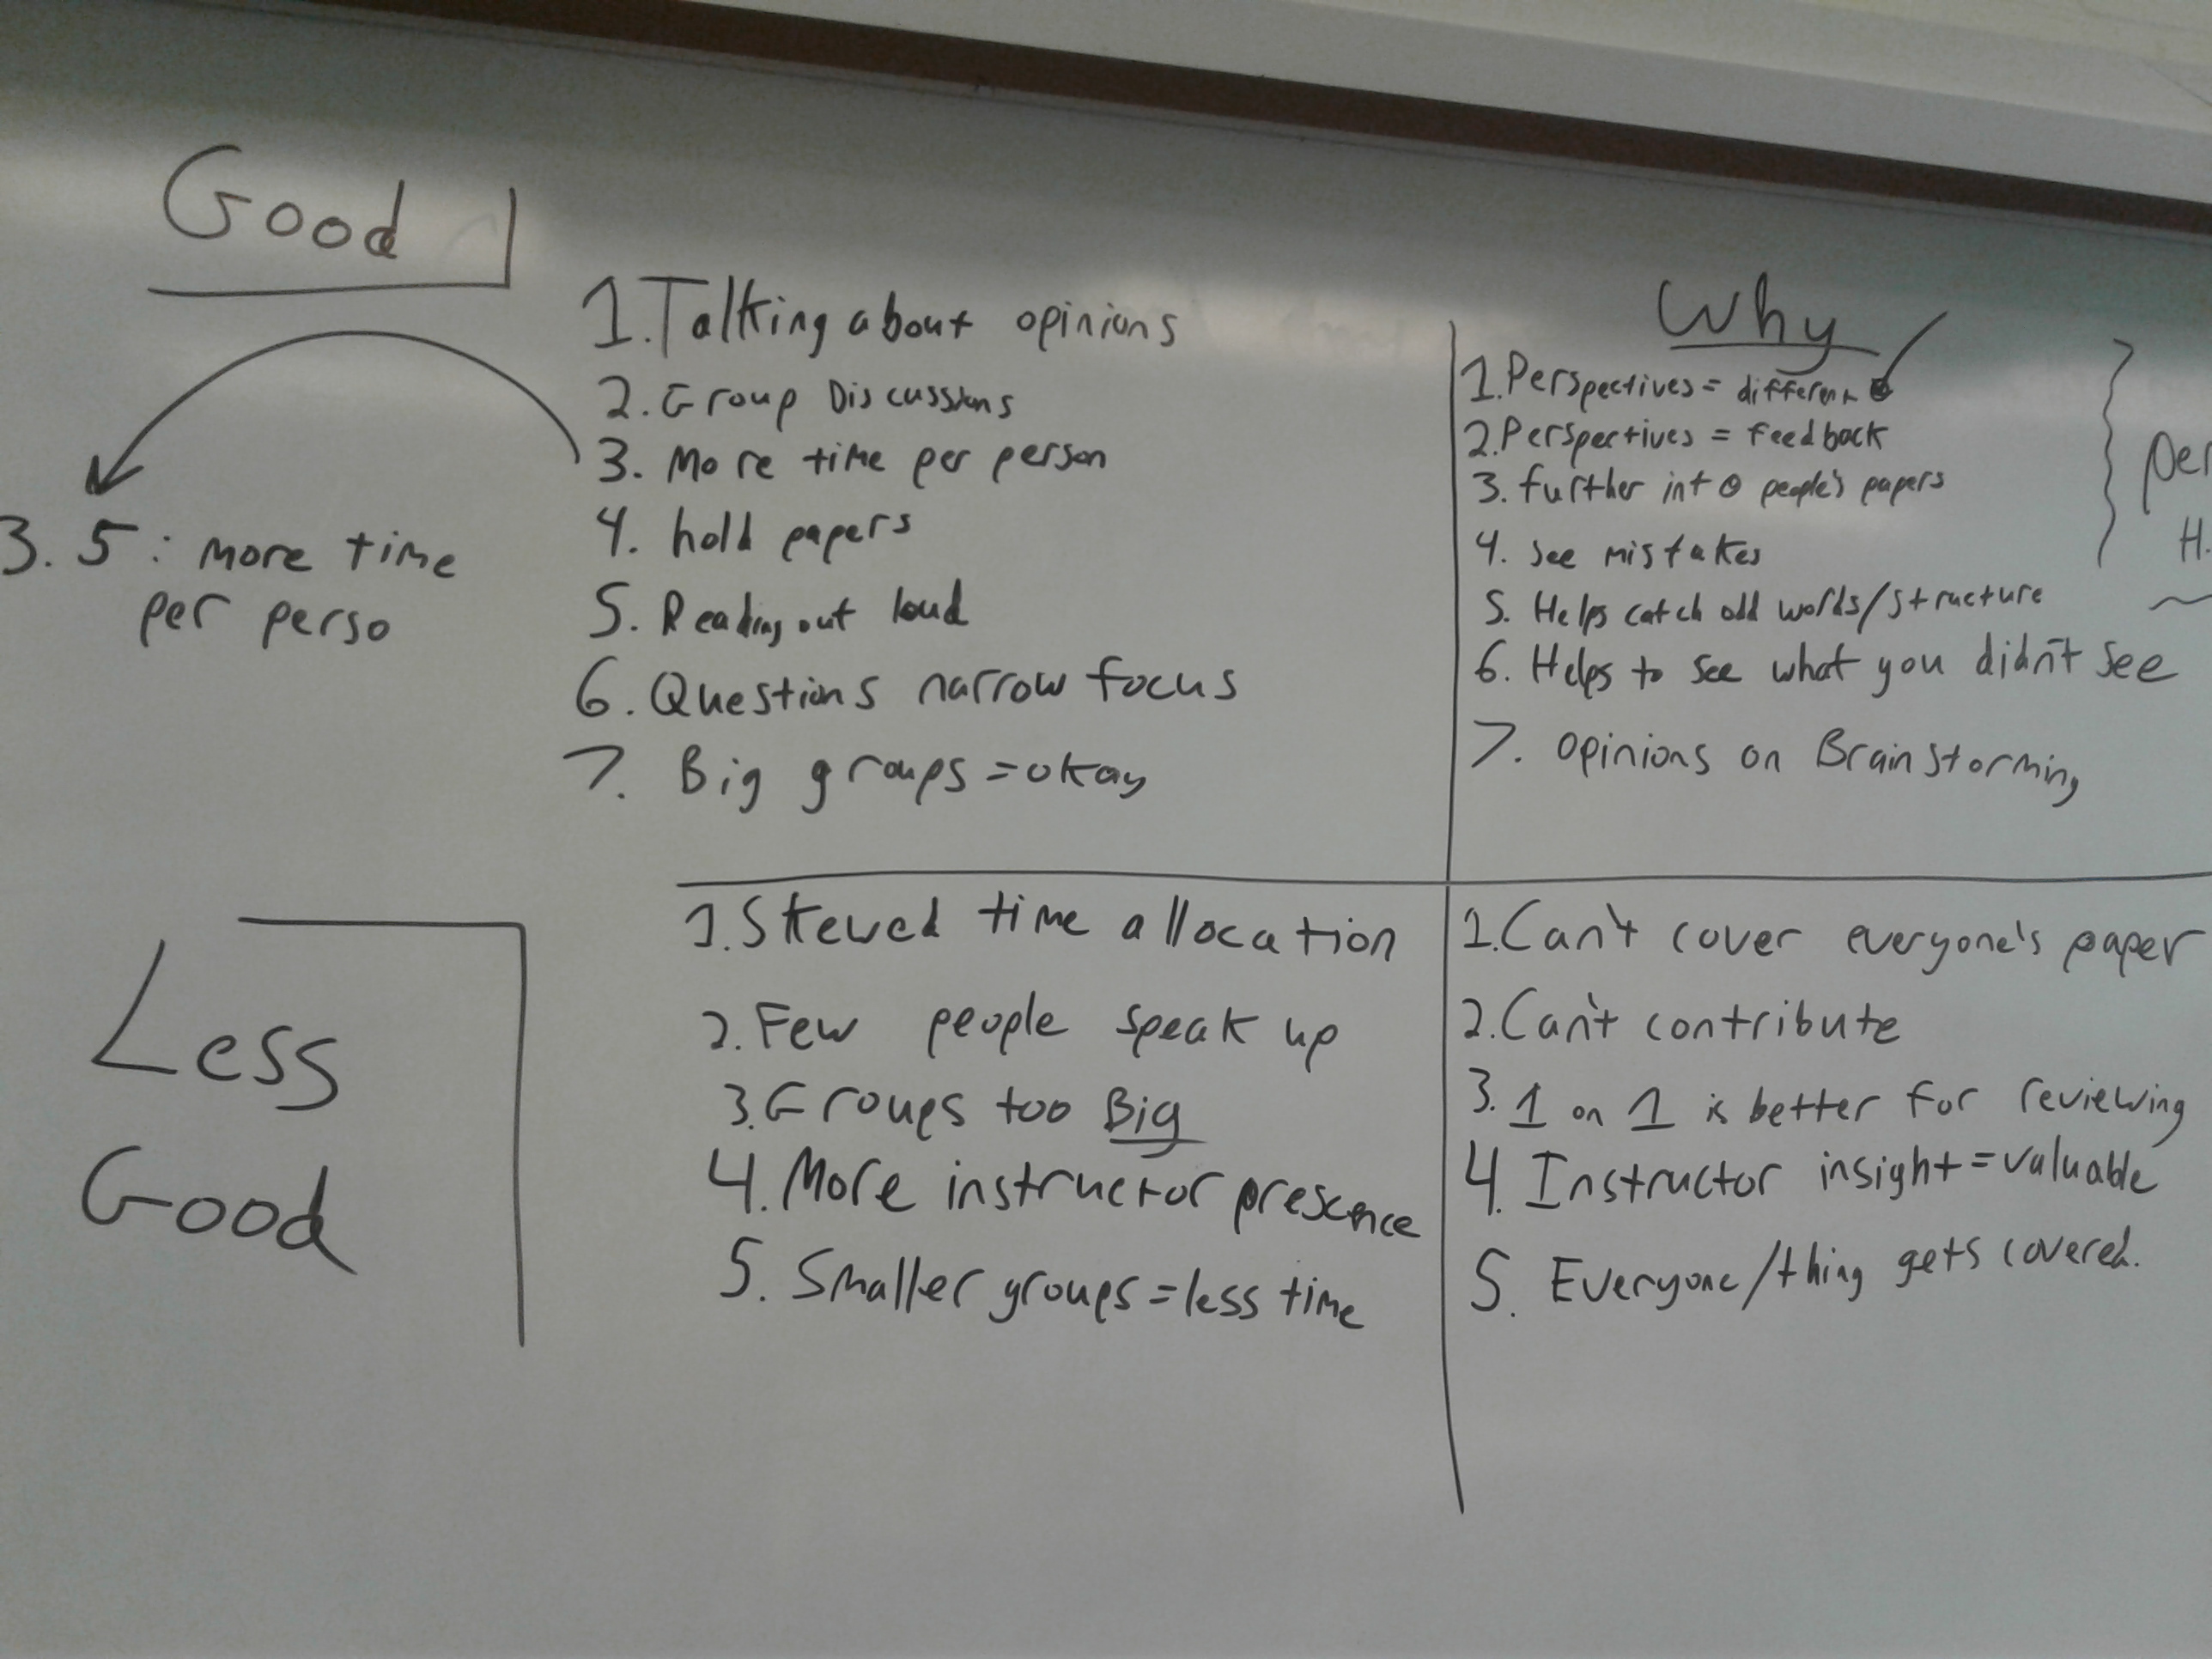 Good
1. Talking about opinions
2. Group Discussions
3. More time per person
4. hold papers
5. Reading out loud
6. Questions narrow focus
7. Big groups = okay
3.5: more time
per perso
Why
1. Perspectives = different
2. Perspectives = Feedback
3. further into people's papers
4. see mistakes
5. Helps catch odd words/structure
6. Helps to see what you didn't see
7. Opinions on Brainstorming
per
H.
Less
Good
1. Skewed time allocation
2. Few people speak up
3. Groups too Big
4. More instructor presence
5. Smaller groups = less time
1. Can't cover everyone's paper
2. Can't contribute
3. 1 on 1 is better for reviewing
4. Instructor insight = valuable
5. Everyone/thing gets covered.